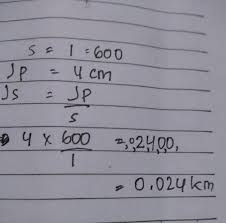 s = 1 = 600
Jp = 4 cm
Js = Jp
s
4 x 600
1
= 0.024 km